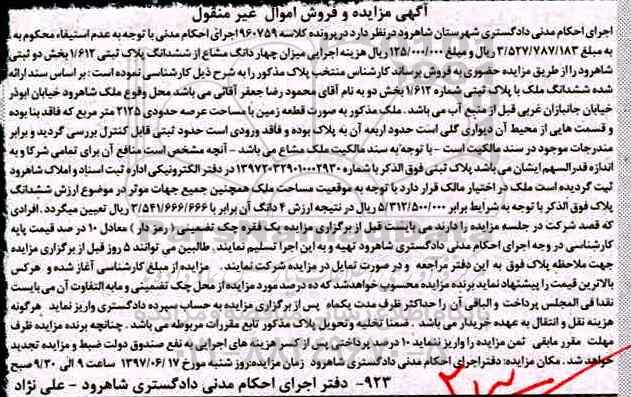 آگهی مزایده و فروش اموال غیر منقول
اجرای احکام مدنی دادگستری شهرستان شاهرود در نظر دارد در پرونده کلاسه ۹۶۰۷۵۹ اجرای احکام مدنی با توجه به عدم استیفاء محکوم به
به مبلغ ۳/۵۲۷/۷۸۷/۱۸۳ ریال و مبلغ ۱۲۵/۰۰۰/۰۰۰ ریال هزینه اجرایی میزان چهار دانگ مشاع از ششدانگ پلاک ثبتی ۱/۶۱۲ بخش دو ثبتی
شاهرود را از طریق مزایده حضوری به فروش برساند کارشناس منتخب پلاک مذکور را به شرح ذیل کارشناسی نموده است : بر اساس سند ارائه
شده ششدانگ ملک با پلاک ثبتی شماره ۱/۶۱۲ بخش دو به نام آقای محمود رضا جعفر آقائی می باشد محل وقوع ملک شاهرود خیابان ابوذر
خیابان جانبازان غربی قبل از منبع آب می باشد . ملک مذکور به صورت قطعه زمین با مساحت عرصه حدودی ۲۱۲۵ متر مربع که فاقد بنا بوده
و قسمت هایی از محیط آن دیواری گلی است حدود اربعه آن به پلاک بوده و فاقد ورودی است حدود ثبتی قابل کنترل بررسی گردید و برابر
مندرجات موجود در سند مالکیت است - با توجه به سند مالکیت ملک مشاع می باشد - آنچه مشخص است منافع آن برای تمامی شرکا و به
اندازه قدرالسهم ایشان می باشد پلاک ثبتی فوق الذکر با شماره ۱۳۹۷۲۰۳۲۹۰۱۰۰۰۲۹۳۰ در دفتر الکترونیکی اداره ثبت اسناد و املاک شاهرود
ثبت گردیده است ملک در اختیار مالک قرار دارد با توجه به موقعیت مساحت ملک همچنین جمیع جهات موثر در موضوع ارزش ششدانگ
پلاک فوق الذکر با توجه به شرایط برابر ۵/۳۱۲/۵۰۰/۰۰۰ ریال در نتیجه ارزش ۴ دانگ آن برابر با ۳/۵۴۱/۶۶۶/۶۶۶ ریال تعیین میگردد . افرادی
که قصد شرکت در جلسه مزایده را دارند می بایست قبل از برگزاری مزایده یک فقره چک تضمینی ( رمز دار ) معادل ۱۰ در صد قیمت پایه
کارشناسی در وجه اجرای احکام مدنی دادگستری شاهرود تهیه و به این اجرا تسلیم نمایند . طالبین می توانند ۵ روز قبل از برگزاری مزایده
جهت ملاحظه پلاک فوق به این دفتر مراجعه و در صورت تمایل در مزایده شرکت نمایند . مزایده از مبلغ کارشناسی آغاز شده و هرکس
بالاترین قیمت را پیشنهاد نماید برنده مزایده محسوب خواهد شد که ده درصد مورد مزایده از محل چک تضمینی و مابه التفاوت آن می بایست
نقدا فی المجلس پرداخت و الباقی آن را حداکثر ظرف مدت یکماه پس از برگزاری مزایده به حساب سپرده دادگستری واریز نماید هرگونه
هزینه نقل و انتقال به عهده خریدار می باشد . ضمنا تخلیه و تحویل پلاک مذکور تابع مقررات مربوطه می باشد . چنانچه برنده مزایده ظرف
مهلت مقرر مابقی ثمن مزایده را واریز ننماید ۱۰ درصد پرداختی پس از کسر هزینه های اجرای به نفع صندوق دولت ضبط و مزایده تجدید
خواهد شد . مکان مزایده: دفتر اجرای احکام مدنی دادگستری شاهرود زمان مزایده:روز شنبه مورخ ۱۳۹۷/۰۶/۱۷ ساعت ۹ الی ۹/۳۰ صبح
۹۲۳- دفتر اجرای احکام مدنی دادگستری شاهرود - علی نژاد